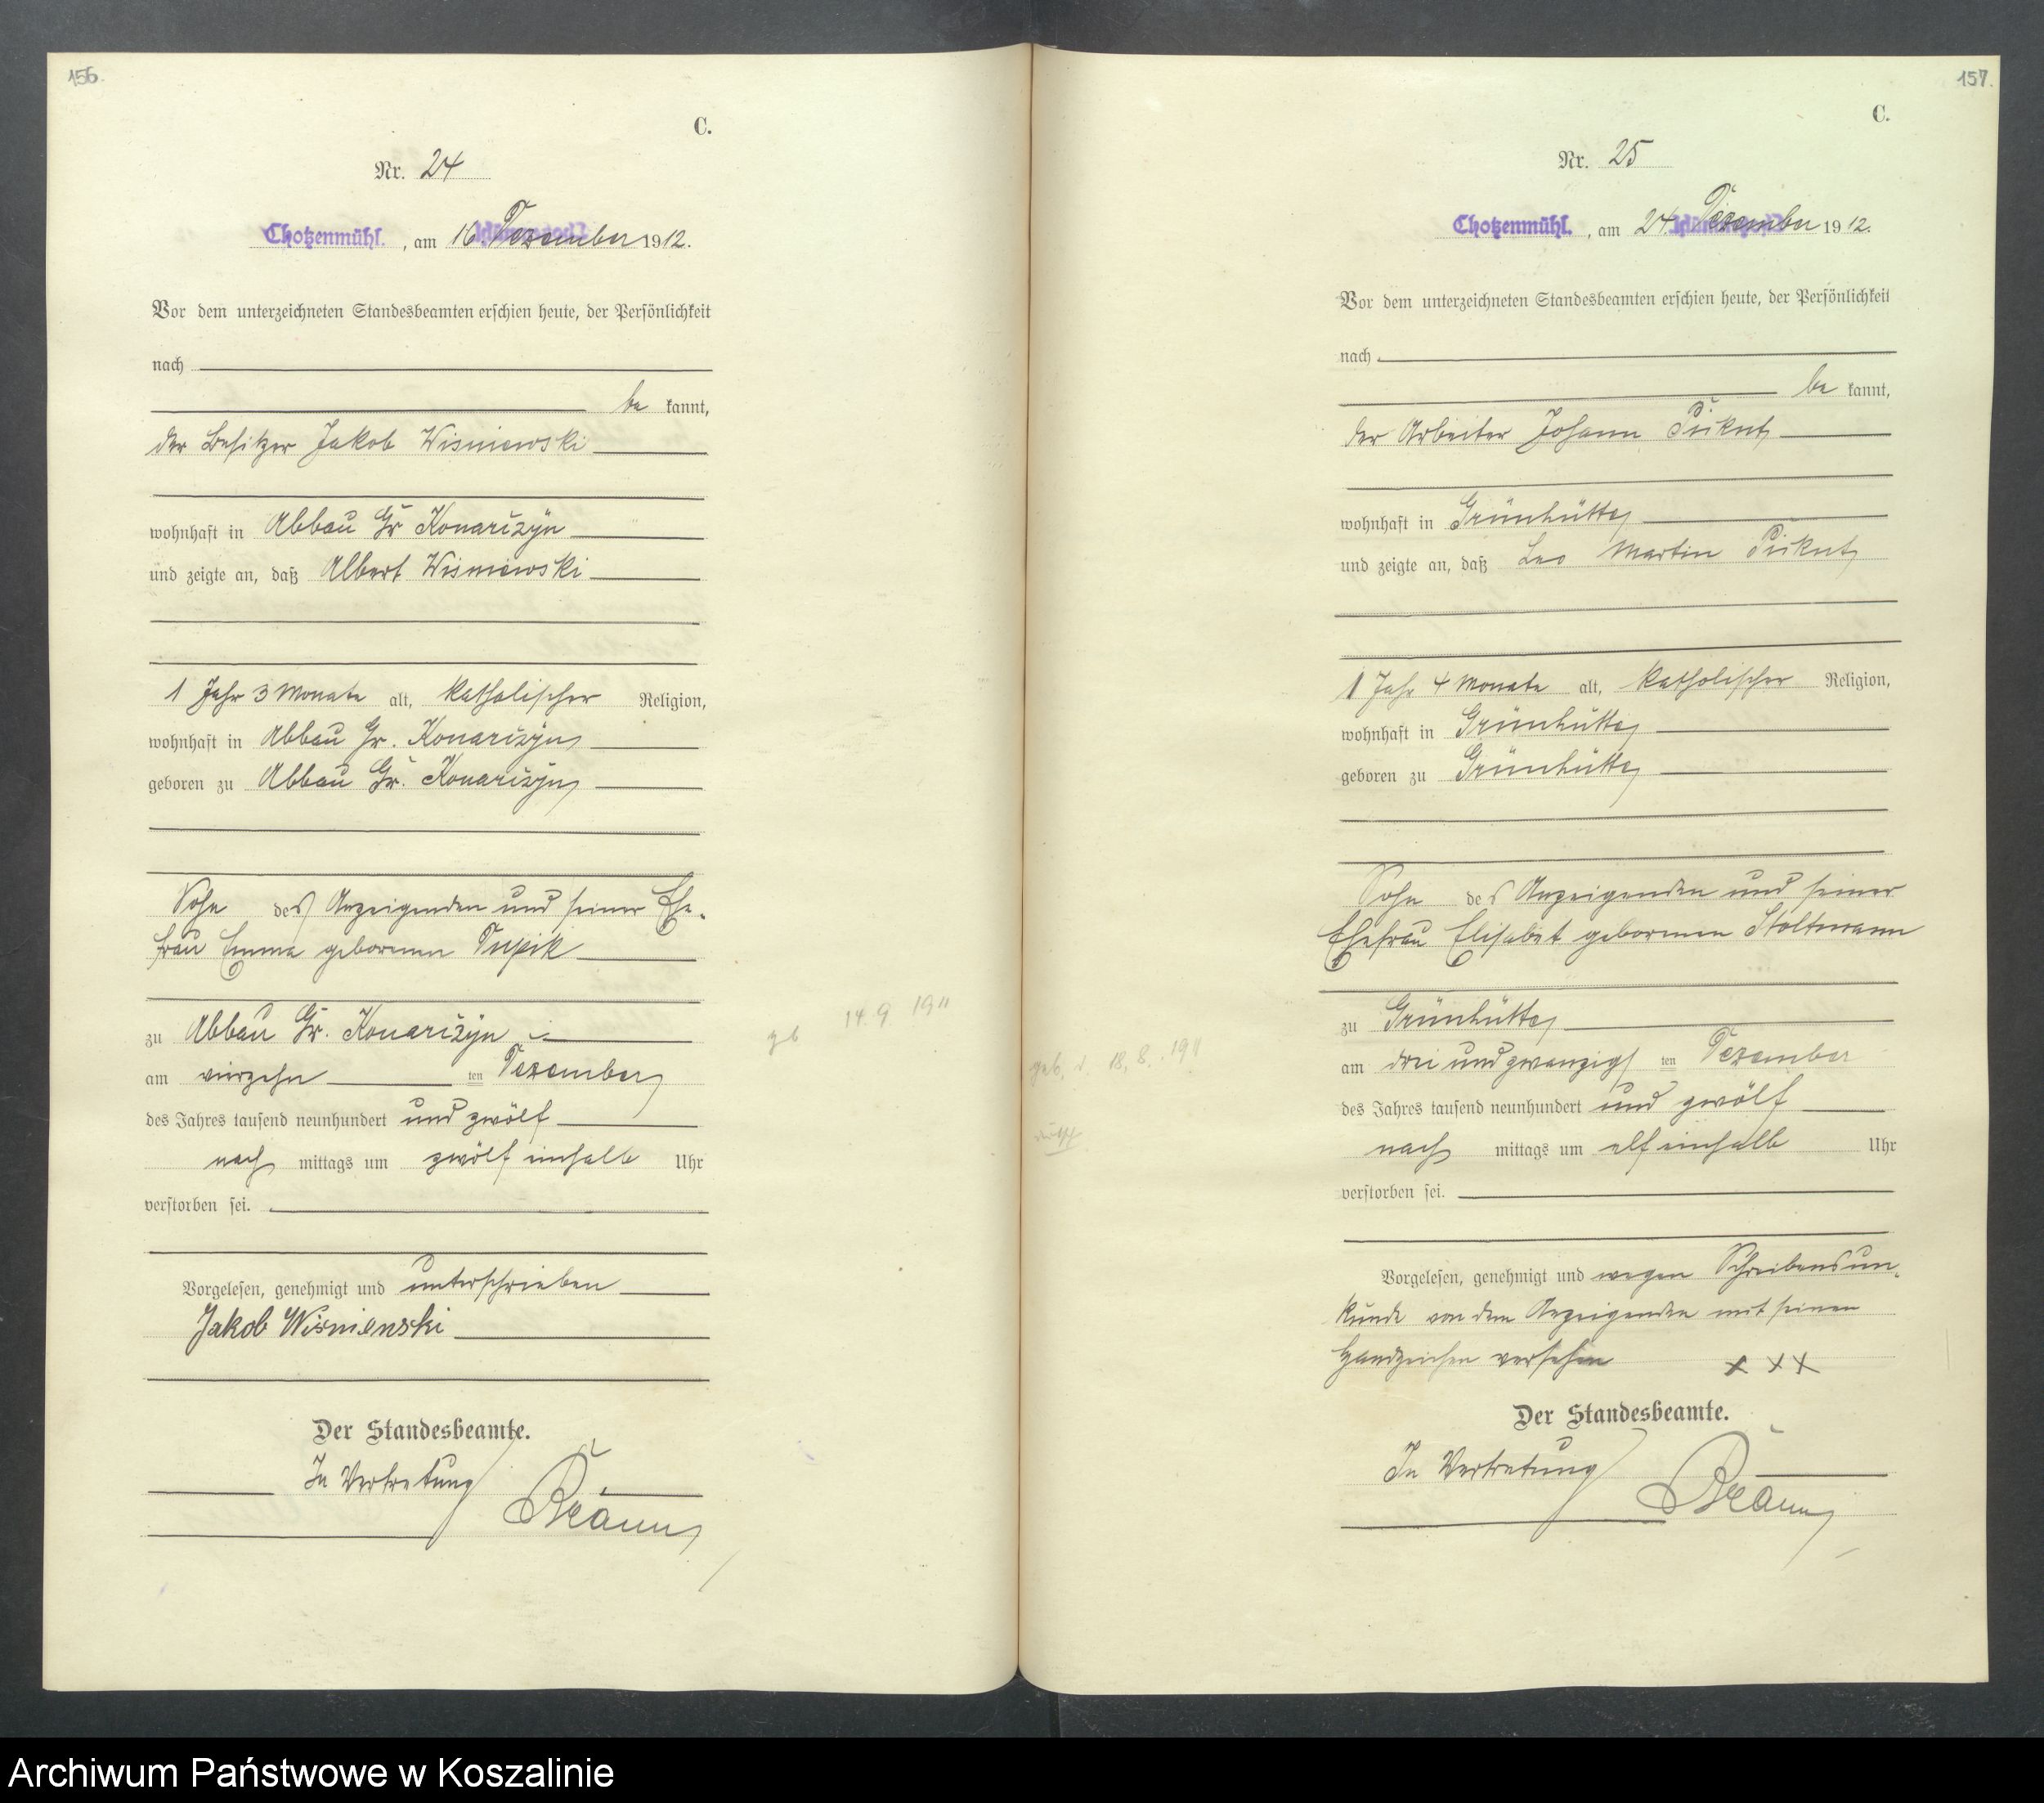 156.
C.
Nr. 24
Chotzenmühl. , am 16. Dezember 1912.
Vor dem unterzeichneten Standesbeamten erschien heute, der Persönlichkeit
nach
be kannt,
der Besitzer Jakob Wisniewski
wohnhaft in Abbau Gr Konarizyn
und zeigte an, daß Albert Wisniewski
1 Jahr 3 Monate alt, katholischer Religion,
wohnhaft in Abbau Gr. Konarizyn
geboren zu Abbau Gr. Konarizyn
Sohn des Anzeigenden und seiner Ehe-
frau Emma geborenen Tupik
zu Abbau Gr. Konarizyn
am vierzehn ten Dezember
des Jahres tausend neunhundert und zwölf
nach mittags um zwölf einhalb Uhr
verstorben sei.
Vorgelesen, genehmigt und unterschrieben
Jakob Wisniewski
Der Standesbeamte.
In Vertretung
14. 9 1911
157.
C.
Nr. 25
Chotzenmühl. , am 24. Dezember 1912.
Vor dem unterzeichneten Standesbeamten erschien heute, der Persönlichkeit
nach
be kannt,
der Arbeiter Johann
wohnhaft in Grünhütte
und zeigte an, daß Leo Martin
1 Jahr 4 Monate alt, katholischer Religion,
wohnhaft in Grünhütte
geboren zu Grünhütte
Sohn des Anzeigenden und seiner
Ehefrau Elisabet geborenen Stoltmann
zu Grünhütte
am drei und zwanzigs ten Dezember
des Jahres tausend neunhundert und zwölf
nach mittags um elf einhalb Uhr
verstorben sei.
Vorgelesen, genehmigt und wegen Schreibensun-
kunde von dem Anzeigenden mit seinen
Handzeichen versehen x x x
Der Standesbeamte.
In Vertretung
geb. d. 18. 8. 1911
Archiwum Państwowe w Koszalinie